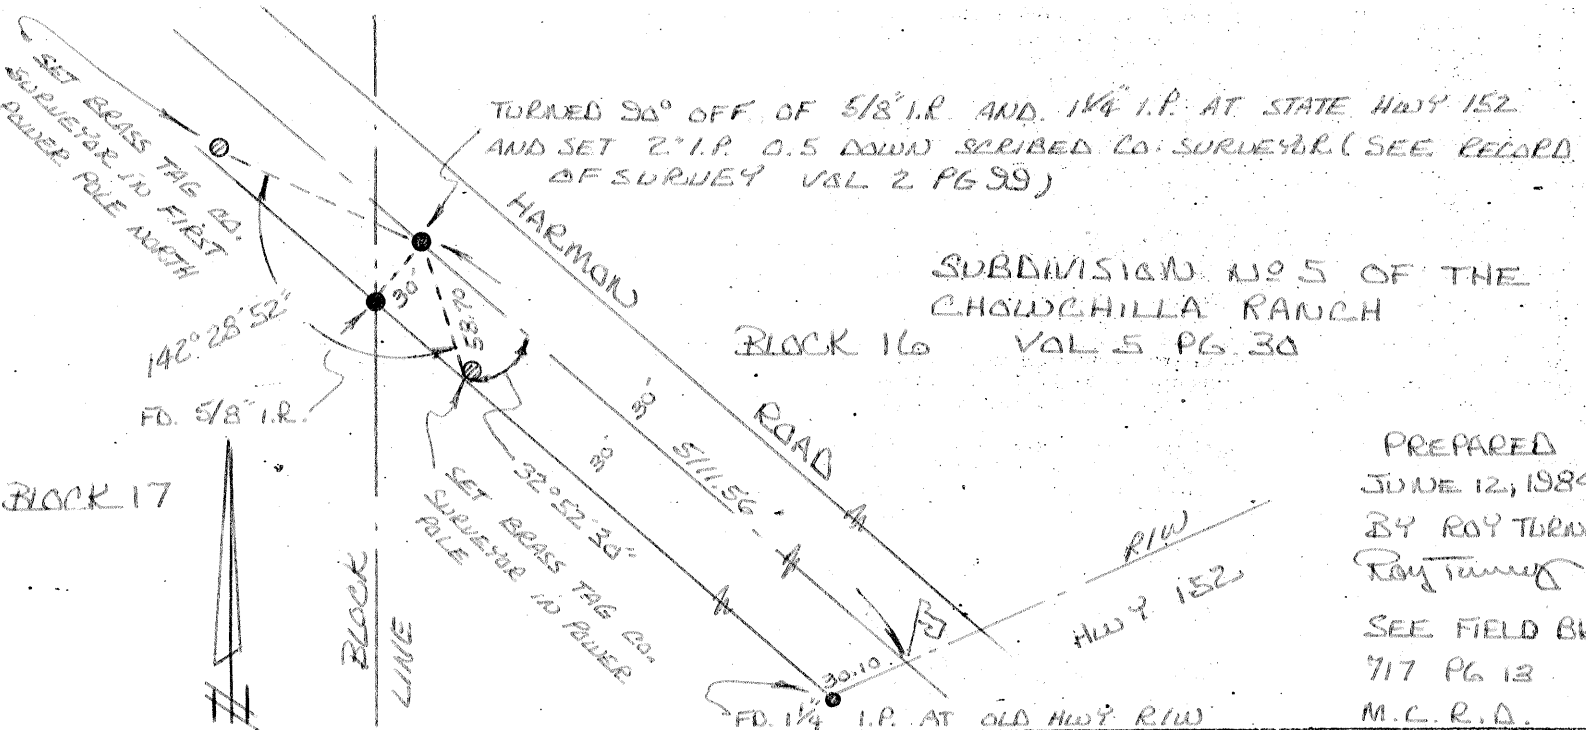 SET BRASS TAG CO.
SURVEYOR IN FIRST
POWER POLE NORTH
TURNED 90° OFF OF 5/8" I.R. AND 1¼" I.P. AT STATE HWY 152
AND SET 2" I.P. 0.5 DOWN SCRIBED CO. SURVEYOR (SEE RECORD
OF SURVEY VOL 2 PG 99)
HARMON
ROAD
SUBDIVISION Nº 5 OF THE
CHOWCHILLA RANCH
BLOCK 16 VOL 5 PG 30
30'
58.20
142° 28' 52"
FD. 5/8" I.R.
BLOCK 17
BLOCK
LINE
SET BRASS TAG CO.
SURVEYOR IN POWER
POLE
32° 52' 30"
30'
30'
5111.56
R/W
HWY 152
30.10
FD. 1¼" I.P. AT OLD HWY R/W
PREPARED
JUNE 12, 1984
BY ROY TURN
Roy Turner
SEE FIELD BK
717 PG 13
M.C.R.D.